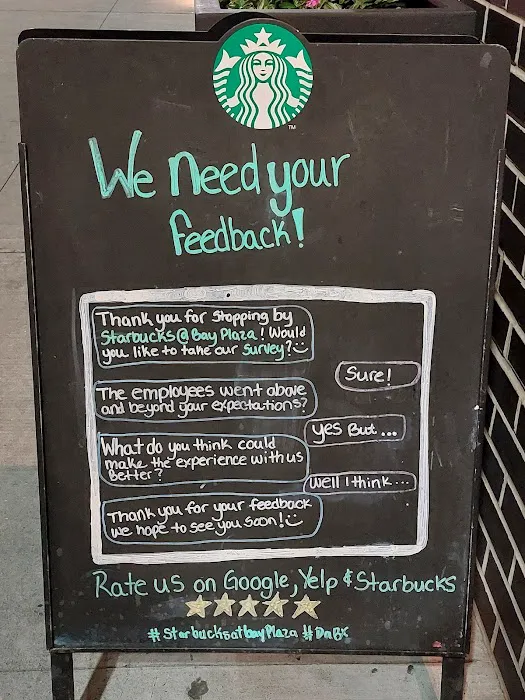 We Need your
feedback!
Thank you for stopping by
Starbucks @ Bay Plaza! Would
you like to take our Survey?
Sure!
The employees went above
and beyond your expectations?
yes But...
What do you think could
make the experience with us
Better?
Well I think...
Thank you for your feedback
we hope to see you soon!
Rate us on Google, Yelp & Starbucks
#StarbucksatbayPlaza #DnBX
TM